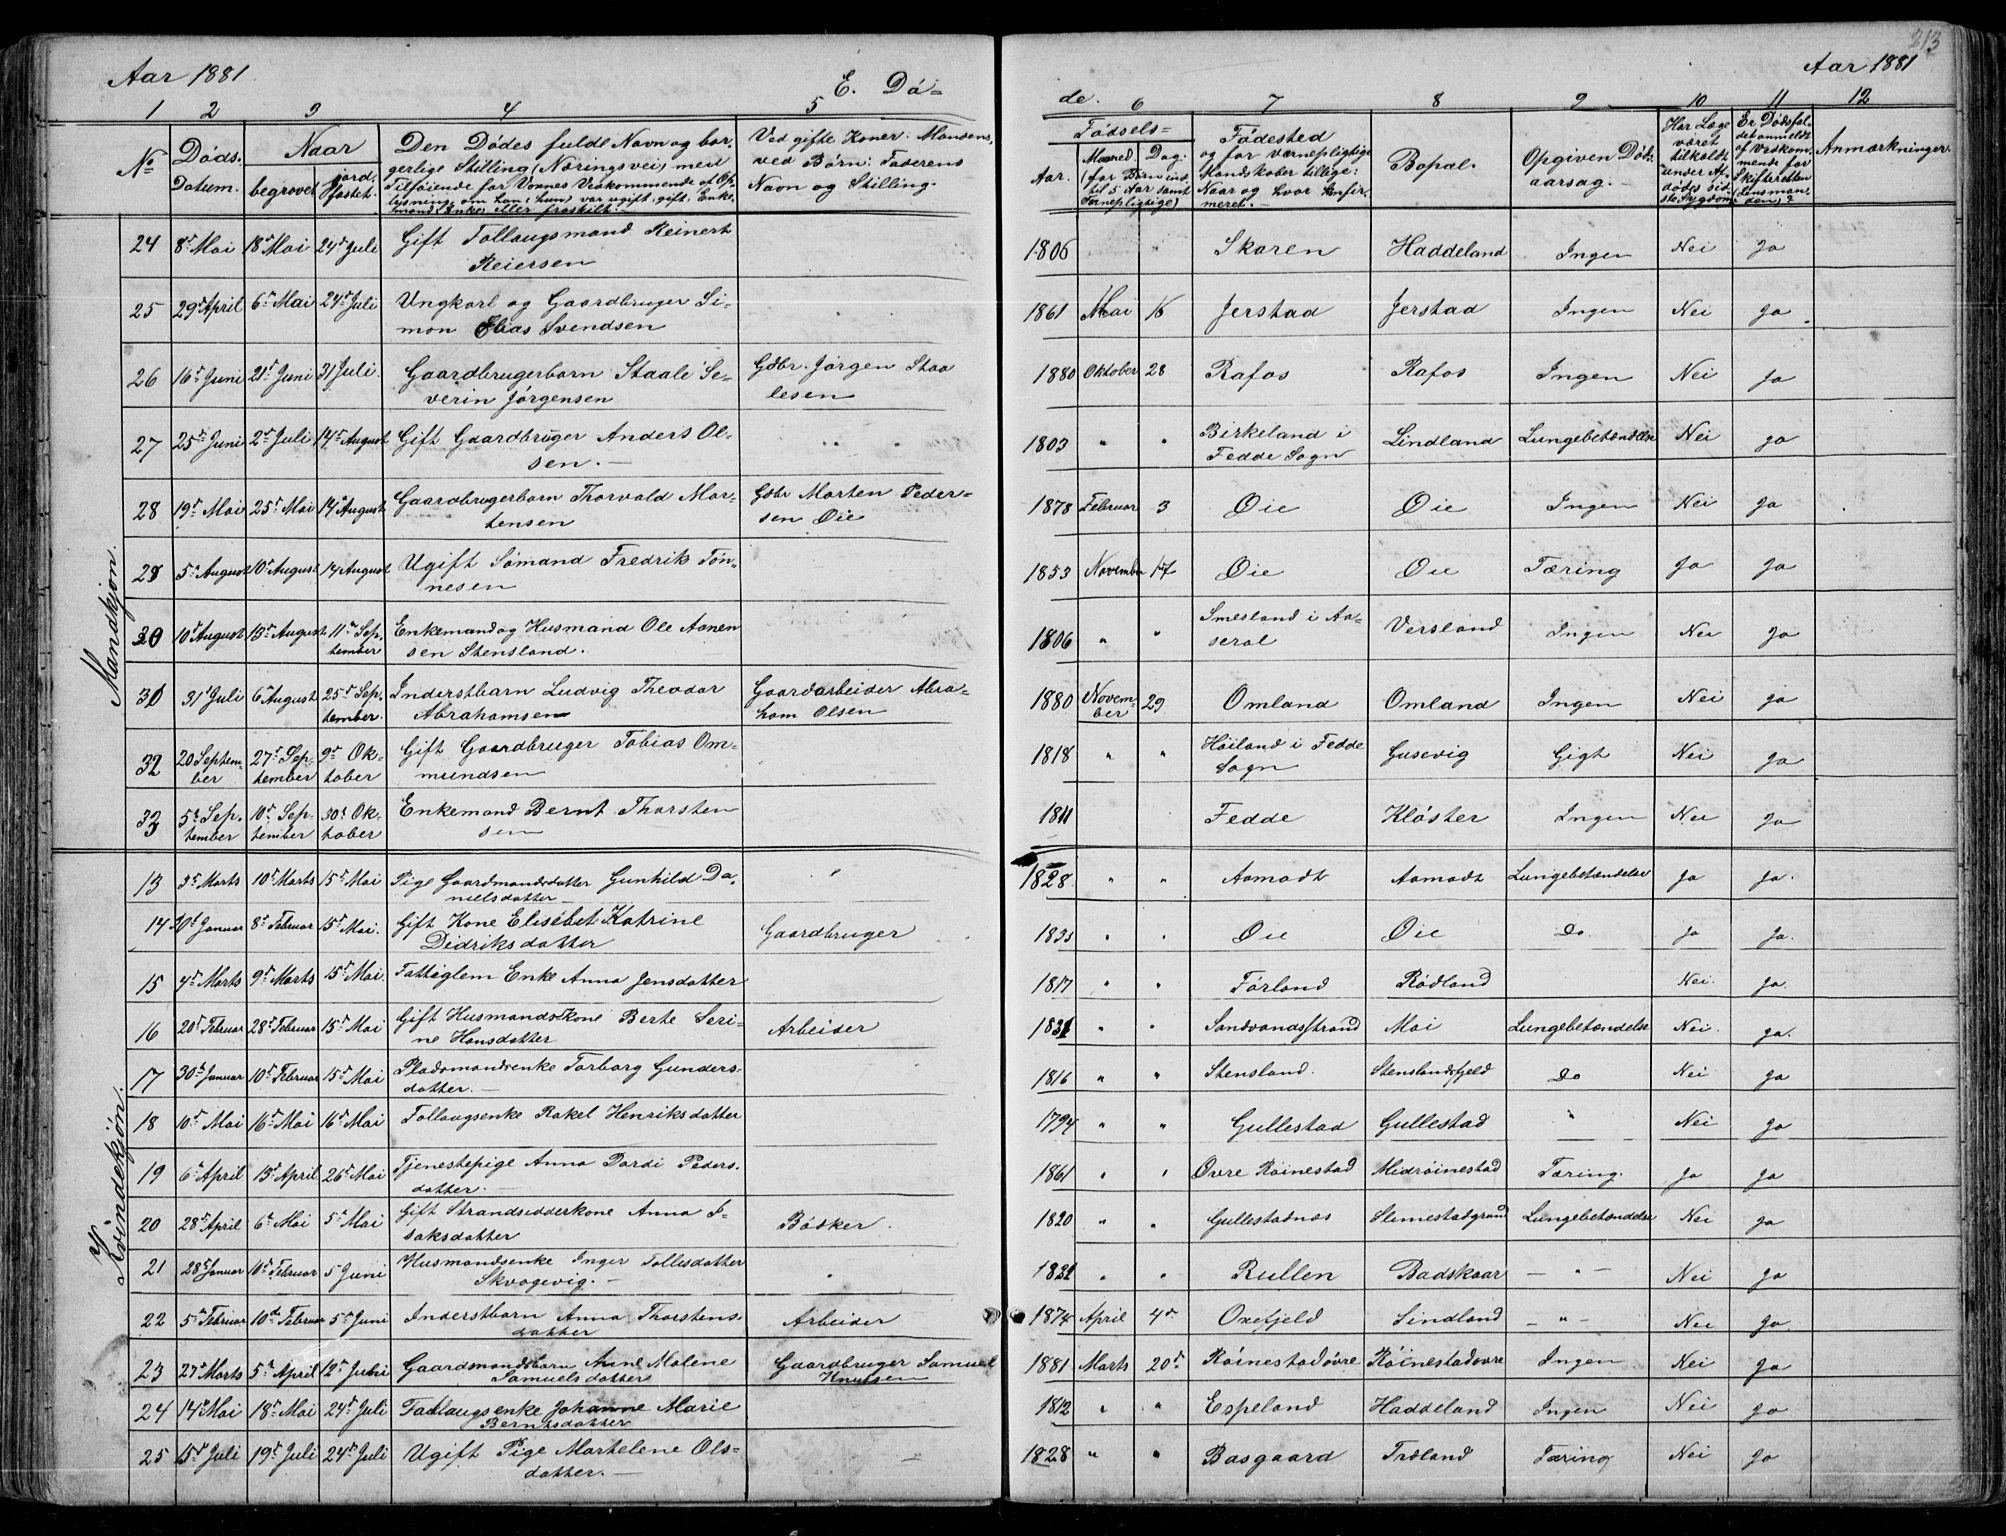 213
Aar 1881. E. Dö=
de. Aar 1881
1 2 3 4 5 6 7 8 9 10 11 12
No Döds. Datum. Naar begravet jord. fæstet.
Den Dödes fulde Navn og bor,
gerlige Stilling (Næringsvei) med
Tilföiende for Voxnes Vedkommende af Op,
lysning, om han (hun) var ugift, gift, Enke,
mand, Enke, eller fraskilt.
Ved gifte Koner: Mandens,
ved Börn: Faderens
Navn og Stilling.
Födsels=
Aar. Maaned. (for Börn ind, til 5 Aar samt Værnepligtige) Dag.
Födested
og for værnepligtige
Mandskaber tillige:
Naar og hvor konfir,
meret.
Bopæl.
Opgiven Döds,
aarsag.
Har Læge
været
tilkaldt
under Af,
dödes sid,
ste Sygdom
Er Dödsfal,
det anmeldt
af Vedkom,
mende for
Skifteretten
(Lensman,
den)?
Anmærkninger.
Mandkjön.
24 8de Mai 18de Mai 24de Juli Gift Follaugsmand Reinert
Reiersen 1806 " Skaren Haddeland Ingen Nei Ja
25 29de April 6te Mai 24de Juli Ungkarl og Gaardbruger Si=
mon Elias Svendsen 1861 Mai 16 Jerstad Jerstad Ingen Nei Ja
26 16de Juni 21de Juni 31 Juli. Gaardbrugerbarn Staale Se= Gdbr. Jörgen Staa
verin Jörgensen lesen 1880 Oktober 28 Rafos Rafos Ingen Nei Ja
27 25de Juni 2de Juli 14de August Gift Gaardbruger Anders Ol=
sen. 1803 " " Birkeland i
Fedde Sogn Lindland Lungebetændelse Nei Ja
28 19de Mai 25de Mai 14de August Gaardbrugerbarn Thorvald Mar= Gdbr Morten Peder=
tensen sen Öie 1878 Februar 3 Öie Öie Ingen Nei Ja
29 5te August 10de August 14 August Ugift Sömand Fredrik Tön=
nesen 1853 November 17 Öie Öie Tæring Ja Ja
30 10de August 13de August 11te Sep,
tember Enkemand og Husmand Ole Aanen
sen Stensland. 1806 " " Smesland i Aa=
seral Versland Ingen Nei Ja
31 31te Juli 6te August 25de Sep,
tember. Inderstbarn Ludvig Theodor Gaardarbeider Abra=
Abrahamsen ham Olsen 1880 Novem=
ber 29 Omland Omland Ingen Nei Ja
32 20 Septem=
ber 27de Sep,
tember 9de Ok=
tober Gift Gaardbruger Tobias Om=
mundsen 1818 " " Höiland i Fedde
Sogn Gusevig Gigt Nei Ja
33 5te Sep,
tember 10de Sep=
tember 30te Ok=
tober Enkemand Bernt Thorsten
sen 1811 Fedde Klöster Ingen Nei Ja
Kvindekjön.
13 3de Marts 10de Marts 15de Mai Pige Gaardmandsdatter Gunhild Da,
nielsdatter " 1828 " " Aamodt Aamodt Lungebetændelse Ja Ja.
14 30te Januar 8de Februar 15de Mai. Gift Kone Elisebet Katrine
Didriksdatter Gaardbruger 1835 " " Öie Öie Do Ja Ja.
15 4de Marts 9de Marts 15de Mai Fattiglem Enke Anna Jensdatter 1817 " " Förland Rödland Nei. Ja.
16 20de Februar 28de Februar 15de Mai Gift Husmandskone Berte Seri=
ne Hansdatter Arbeider 1831 " " Sandvandsstrand Moi Lungebetændelse Nei. Ja.
17 30te Januar 10de Februar 15de Mai Pladsmandsenke Torborg Gunders,
datter. 1816 " " Stensland. Stenslandsfjeld Do Nei Ja
18 10de Mai 16de Mai 16de Mai Follaugsenke Rakel Henriksdatter 1794 " " Gullestad Gullestad " Nei Ja
19 6te April 13de April 26de Mai Tjenestepige Anna Dordi Peders,
datter. 1861 " " Övre Röinestad Midröinestad Tæring. Ja Ja
20 28de April 6te Mai 5te Mai Gift Strandsidderkone Anna I=
saksdatter Bödker. 1820 " " Gullestadnæs Slimestadgrund Lungebetændelse Nei Ja
21 28de Januar 10de Februar 5 Juni Husmandsenke Inger Tollisdatter
Skvagevig. " " " Rullen Badskaar — " — Nei Ja
22 5te Februar 10de Februar 5te Juni Inderstbarn Anna Thorstens,
datter Arbeider 1874 April 4de Oxefjeld Lindland — " — Nei Ja
23 27de Marts 5te April 12te Juni Gaardmandsbarn Anne Malene Gaardbruger Samuel
Samuelsdatter Knutsen 1881 Marts 20de Röinestadövre Röinestadövre Ingen Nei Ja
24 14de Mai 18de Mai 24de Juli Follaugsenke Johanne Marie
Berntsdatter 1812 " " Espeland Haddeland Ingen Nei Ja
25 15de Juli 19de Juli 24de Juli Ugift Pige Martelene Ols=
datter. 1828 " " Basgaard Træland Tæring Nei Ja